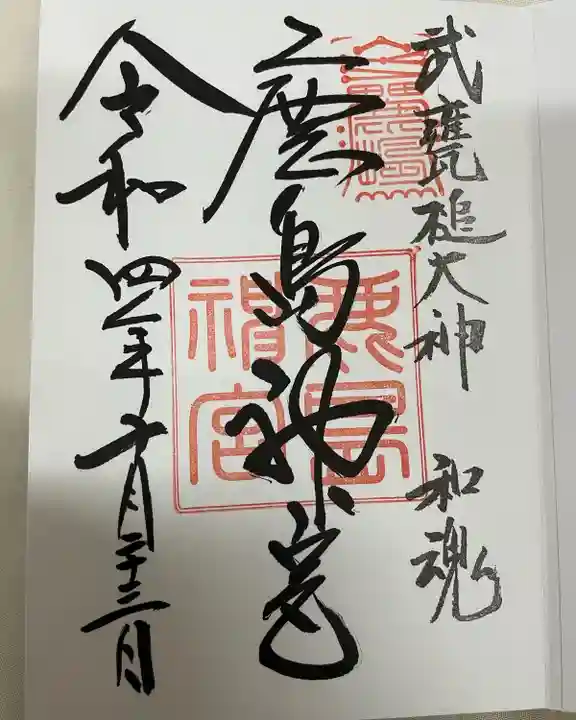 武甕槌大神 和魂
鹿島神宮
鹿島神宮
令和四年十月二十三日